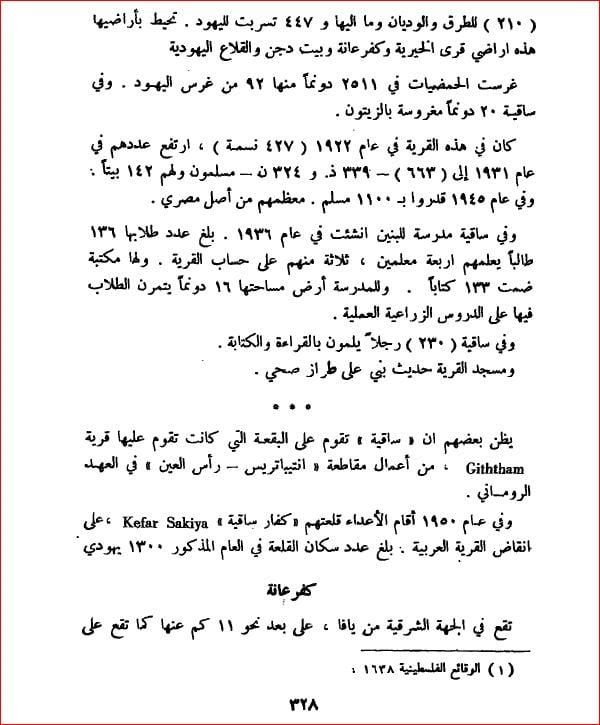 ( ٢١٠ ) للطرق والوديان وما اليها و ٤٤٧ تسربت لليهود . تحيط بأراضيها
هذه اراضي قرى الخيرية وكفرعانة وبيت دجن والقلاع اليهودية
غرست الحمضيات في ٢٥١١ دونماً منها ٩٢ من غرس اليهود . وفي
ساقية ٢٠ دونماً مغروسة بالزيتون .
كان في هذه القرية في عام ١٩٢٢ ( ٤٢٧ نسمة ) ، ارتفع عددهم في
عام ١٩٣١ إلى ( ٦٦٣ ) – ٣٣٩ ذ. و ٣٢٤ ن – مسلمون ولهم ١٤٢ بيتاً .
وفي عام ١٩٤٥ قدروا بـ ١١٠٠ مسلم . معظمهم من أصل مصري .
وفي ساقية مدرسة للبنين انشئت في عام ١٩٣٦ . بلغ عدد طلابها ١٣٦
طالباً يعلمهم اربعة معلمين ، ثلاثة منهم على حساب القرية . ولها مكتبة
ضمت ١٣٣ كتاباً . وللمدرسة أرض مساحتها ١٦ دونماً يتمرن الطلاب
فيها على الدروس الزراعية العملية .
وفي ساقية ( ٢٣٠ ) رجلاً يلمون بالقراءة والكتابة .
ومسجد القرية حديث بني على طراز صحي .
* * *
يظن بعضهم ان « ساقية » تقوم على البقعة التي كانت تقوم عليها قرية
Giththam ، من أعمال مقاطعة « انتيباتريس – رأس العين » في العهد
الروماني .
وفي عام ١٩٥٠ أقام الأعداء قلعتهم « كفار ساقية » Kefar Sakiya ، على
انقاض القرية العربية . بلغ عدد سكان القلعة في العام المذكور ١٣٠٠ يهودي
كفرعانة
تقع في الجهة الشرقية من يافا ، على بعد نحو ١١ كم عنها كما تقع على
(١) الوقائع الفلسطينية ١٦٣٨ .
٣٢٨